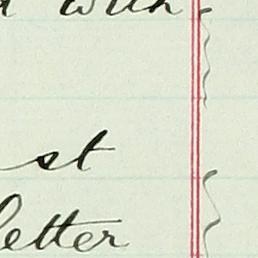 with
st
letter